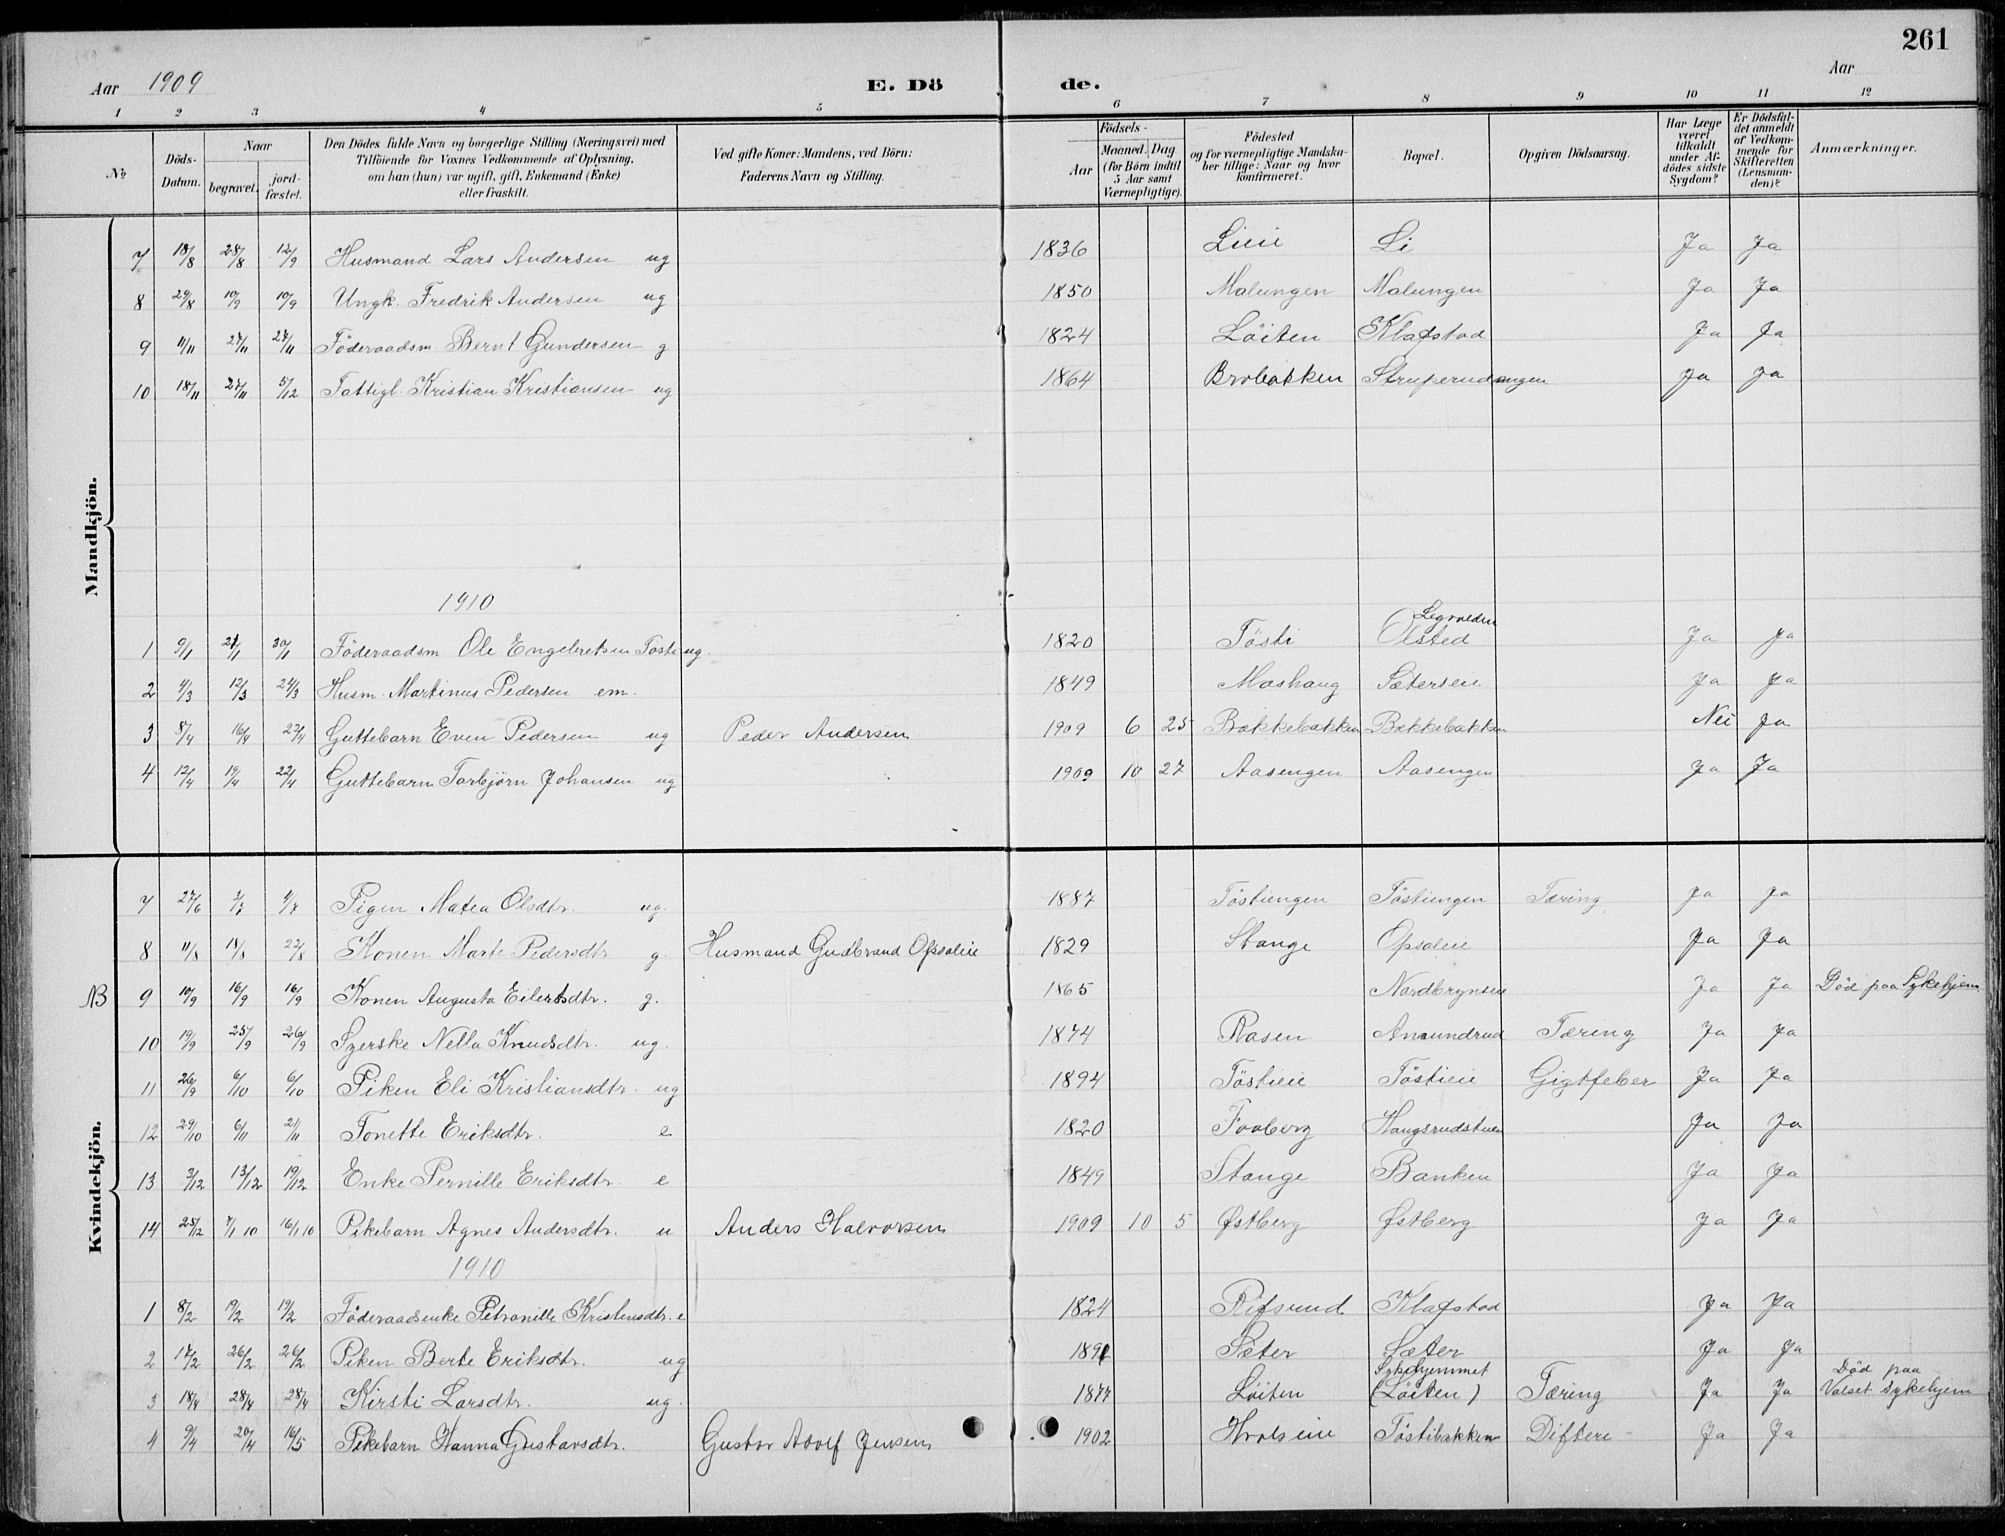 261
Aar 1909 E. Dö de. Aar
1 2 3 4 5 6 7 8 9 10 11 12
No Döds-Datum. Naar begravet. jord-fæstet. Den Dödes fulde Navn og borgerlige Stilling (Næringsvei) med Tilföiende for Voxnes Vedkommende af Oplysning, om han (hun) var ugift, gift, Enkemand (Enke) eller fraskilt. Ved gifte Koner: Mandens, ved Börn: Faderens Navn og Stilling. Födsels- Aar Maaned. Dag (for Börn indtil 5 Aar samt Værnepligtige). Födested og for værnepligtige Mandskaber tillige: Naar og hvor konfirmeret. Bopæl. Opgiven Dödsaarsag. Har Læge været tilkaldt under Afdödes sidste Sygdom? Er Dödsfaldet anmeldt af Vedkommende for Skifteretten (Lensmanden)? Anmærkninger.
Mandkjön.
7 18/8 28/8 12/9 Husmand Lars Andersen ug 1836 Lieie Li Ja Ja
8 29/8 10/9 10/9 Ungk. Fredrik Andersen ug 1850 Malungen Malungen Ja Ja
9 11/11 27/11 27/11 Föderaadsm Bernt Gundersen g 1824 Löiten Klafstad Ja Ja
10 18/11 27/11 5/12 Fattigl. Kristian Kristiansen ug 1864 Brobakken Struperudengen Ja Ja
1910
1 9/1 21/1 30/1 Föderaadsm Ole Engebretsen Tösti ug. 1820 Tösti Olsted Ja Ja
2 4/3 12/3 24/3 Husm. Martinus Pedersen em. 1849 Moshaug Sætersen Ja Ja
3 8/4 16/4 22/4 Guttebarn Even Pedersen ug Peder Andersen 1909 6 25 Bakkebakken Bakkebakken Nei Ja
4 12/4 19/4 22/4 Guttebarn Torbjörn Johansen ug 1909 10 27 Aasengen Aasengen Ja Ja
Kvindekjön.
7 27/6 3/7 4/7 Pigen Matea Olsdtr. ug. 1887 Töstiengen Töstiengen Tæring Ja Ja
8 11/8 18/8 22/8 Konen Marte Pedersdtr g. Husmand Gudbrand Opsaleie 1829 Stange Opsaleie Ja Ja
NB 9 10/9 16/9 16/9 Konen Augusta Eilertsdtr. g. 1865 Nordbrynseie Ja Ja Död paa Sykehjem
10 19/9 25/9 26/9 Syerske Nella Knudsdtr. ug. 1874 Rasen Anundrud Tæring Ja Ja
11 26/9 6/10 6/10 Piken Eli Kristiansdtr. ug 1894 Töstieie Töstieie Gigtfeber Ja Ja
12 29/10 6/11 21/11 Tonette Eriksdtr. e 1820 Faaberg Haugsrudstuen Ja Ja
13 3/12 13/12 19/12 Enke Pernille Eriksdtr. e 1849 Stange Banken Ja Ja
14 25/12 7/1 10 16/1 10 Pikebarn Agnes Andersdtr. u Anders Halvorsen 1909 10 5 Østberg Østberg Ja Ja
1910
1 8/2 19/2 19/2 Föderaadsenke Petronille Kristensdtr. e 1824 Rifsrud Klafstad Ja Ja
2 17/2 26/2 26/2 Piken Berte Eriksdtr. ug 1891 Sæter Sæter Ja Ja
3 18/4 28/4 28/4 Kirsti Larsdtr. ug. 1877 Löiten Sykehjemmet (Löiten) Tæring Ja Ja Död paa Valset Sykehjem
4 9/4 20/4 16/5 Pikebarn Hanna Gustavsdtr. Gustav Adolf Jensen 1902 Hvalseie Töstibakken Difteri Ja Ja